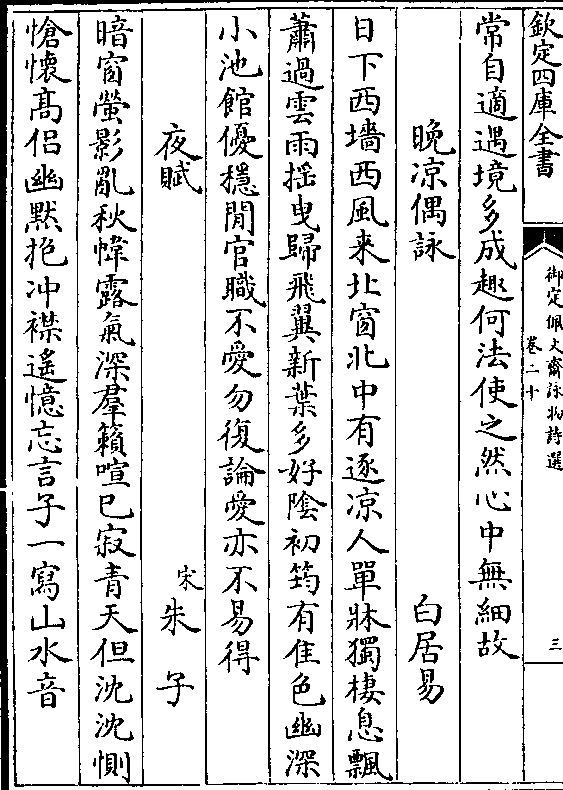 欽定四庫全書
御定佩文齋詠物詩選
卷二十
三
常自適遇境多成趣何法使之然心中無細故
晚凉偶詠 白居易
日下西墻西風來北窗北中有逐凉人單牀獨棲息飄
蕭過雲雨揺曳歸飛翼新葉多好隂初筠有佳色幽深
小池館優穩閒官職不愛勿復論愛亦不易得
夜賦 宋朱子
暗窗螢影亂秋幃露氣深羣籟喧已寂青天但沈沈惻
愴懷髙侣幽黙抱冲襟遙憶忘言子一寫山水音